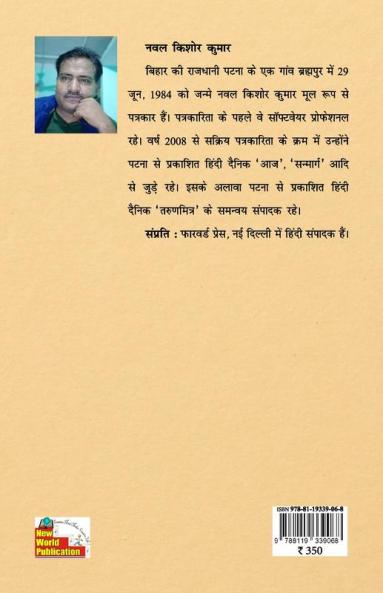 नवल किशोर कुमार
बिहार की राजधानी पटना के एक गांव ब्रह्मपुर में 29
जून, 1984 को जन्मे नवल किशोर कुमार मूल रूप से
पत्रकार हैं। पत्रकारिता के पहले वे सॉफ्टवेयर प्रोफेशनल
रहे। वर्ष 2008 से सक्रिय पत्रकारिता के क्रम में उन्होंने
पटना से प्रकाशित हिंदी दैनिक 'आज', 'सन्मार्ग' आदि
से जुड़े रहे। इसके अलावा पटना से प्रकाशित हिंदी
दैनिक 'तरुणमित्र' के समन्वय संपादक रहे।
संप्रति : फारवर्ड प्रेस, नई दिल्ली में हिंदी संपादक हैं।
ISBN 978-81-19339-06-8
9 788119 339068
₹ 350
New
World
Publication